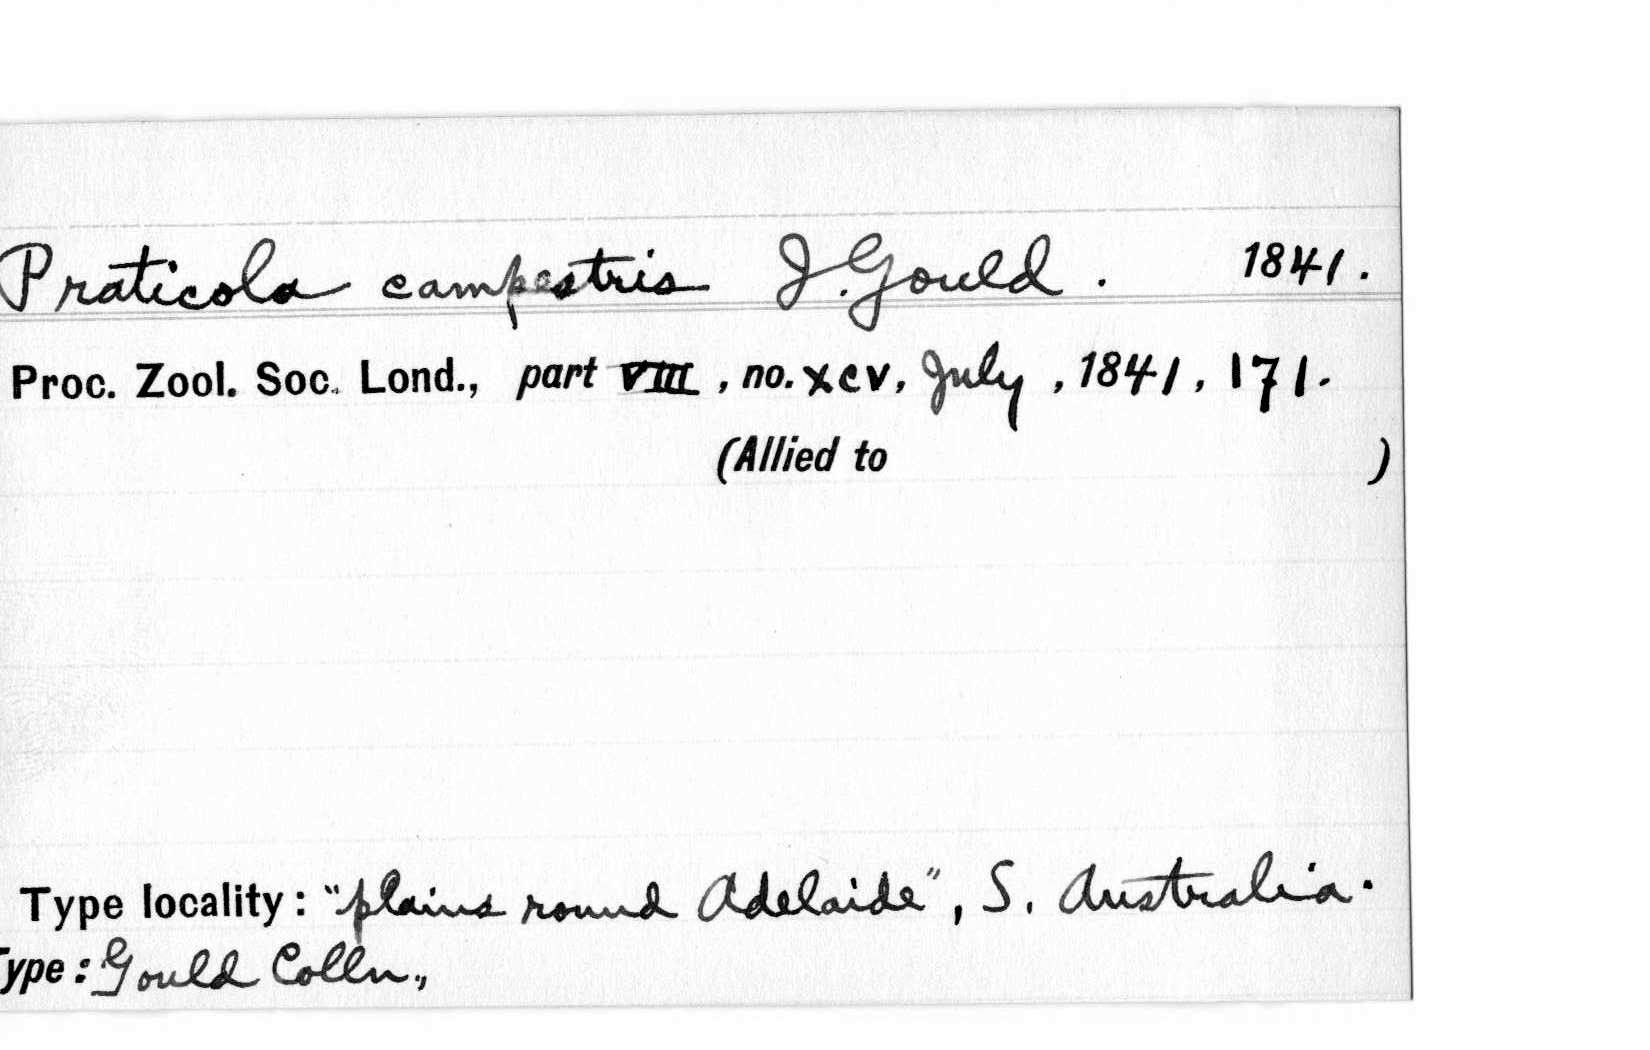 Praticola campestris J. Gould. 1841.
Proc. Zool. Soc. Lond., part VIII, no. XCV, July, 1841, 171.
(Allied to )
Type locality: "plains round Adelaide", S. Australia.
Type: Gould Colln.,